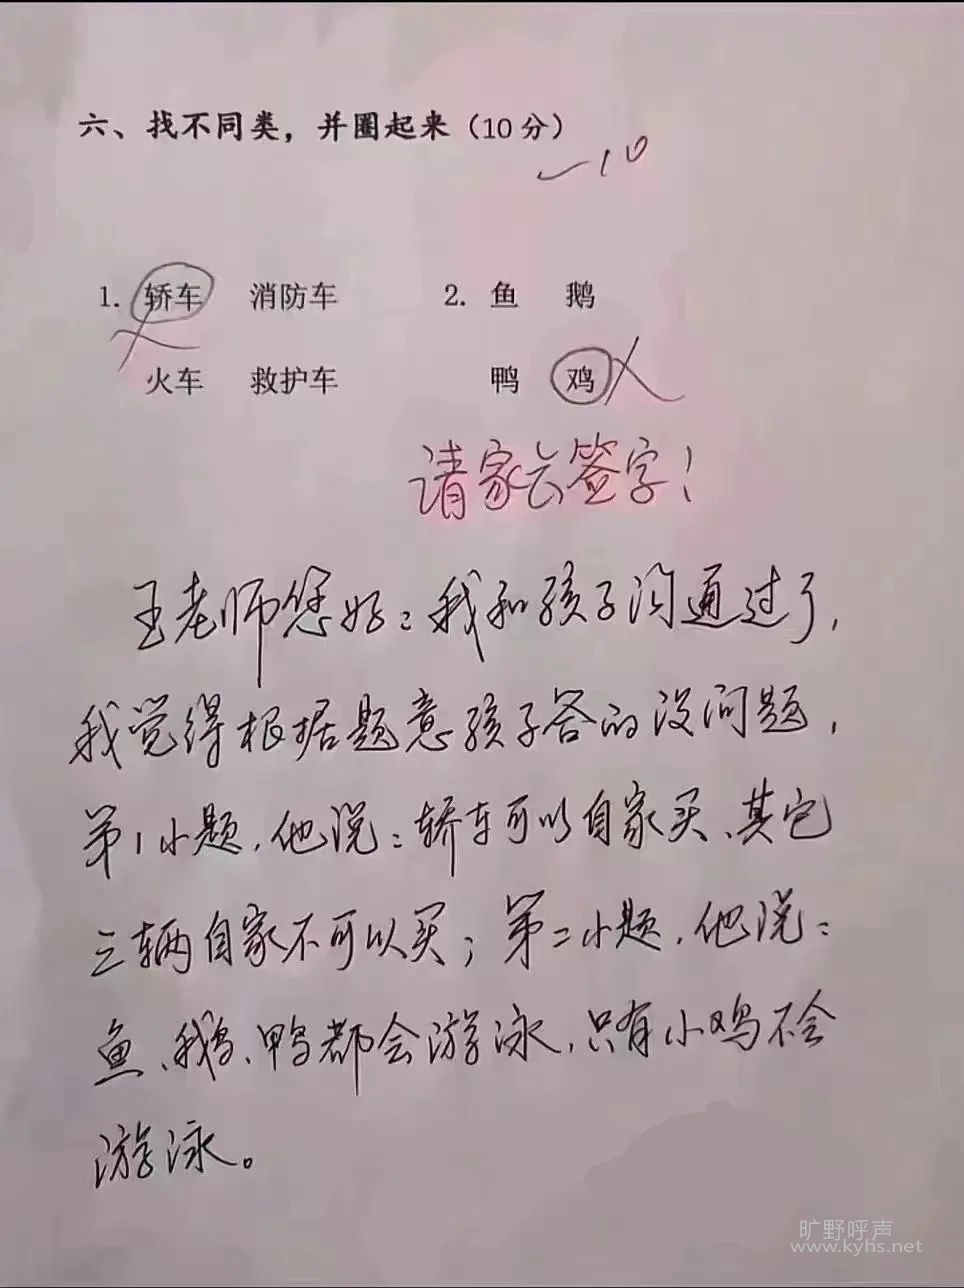 六、找不同类，并圈起来（10分）
-10
1. 轿车 消防车 2. 鱼 鹅
火车 救护车 鸭 鸡
请家长签字！
王老师您好：我和孩子沟通过了，
我觉得根据题意孩子答的没问题，
第1小题，他说：轿车可以自家买、其它
三辆自家不可以买；第二小题，他说：
鱼、鹅、鸭都会游泳，只有小鸡不会
游泳。
旷野呼声
www.kyhs.net